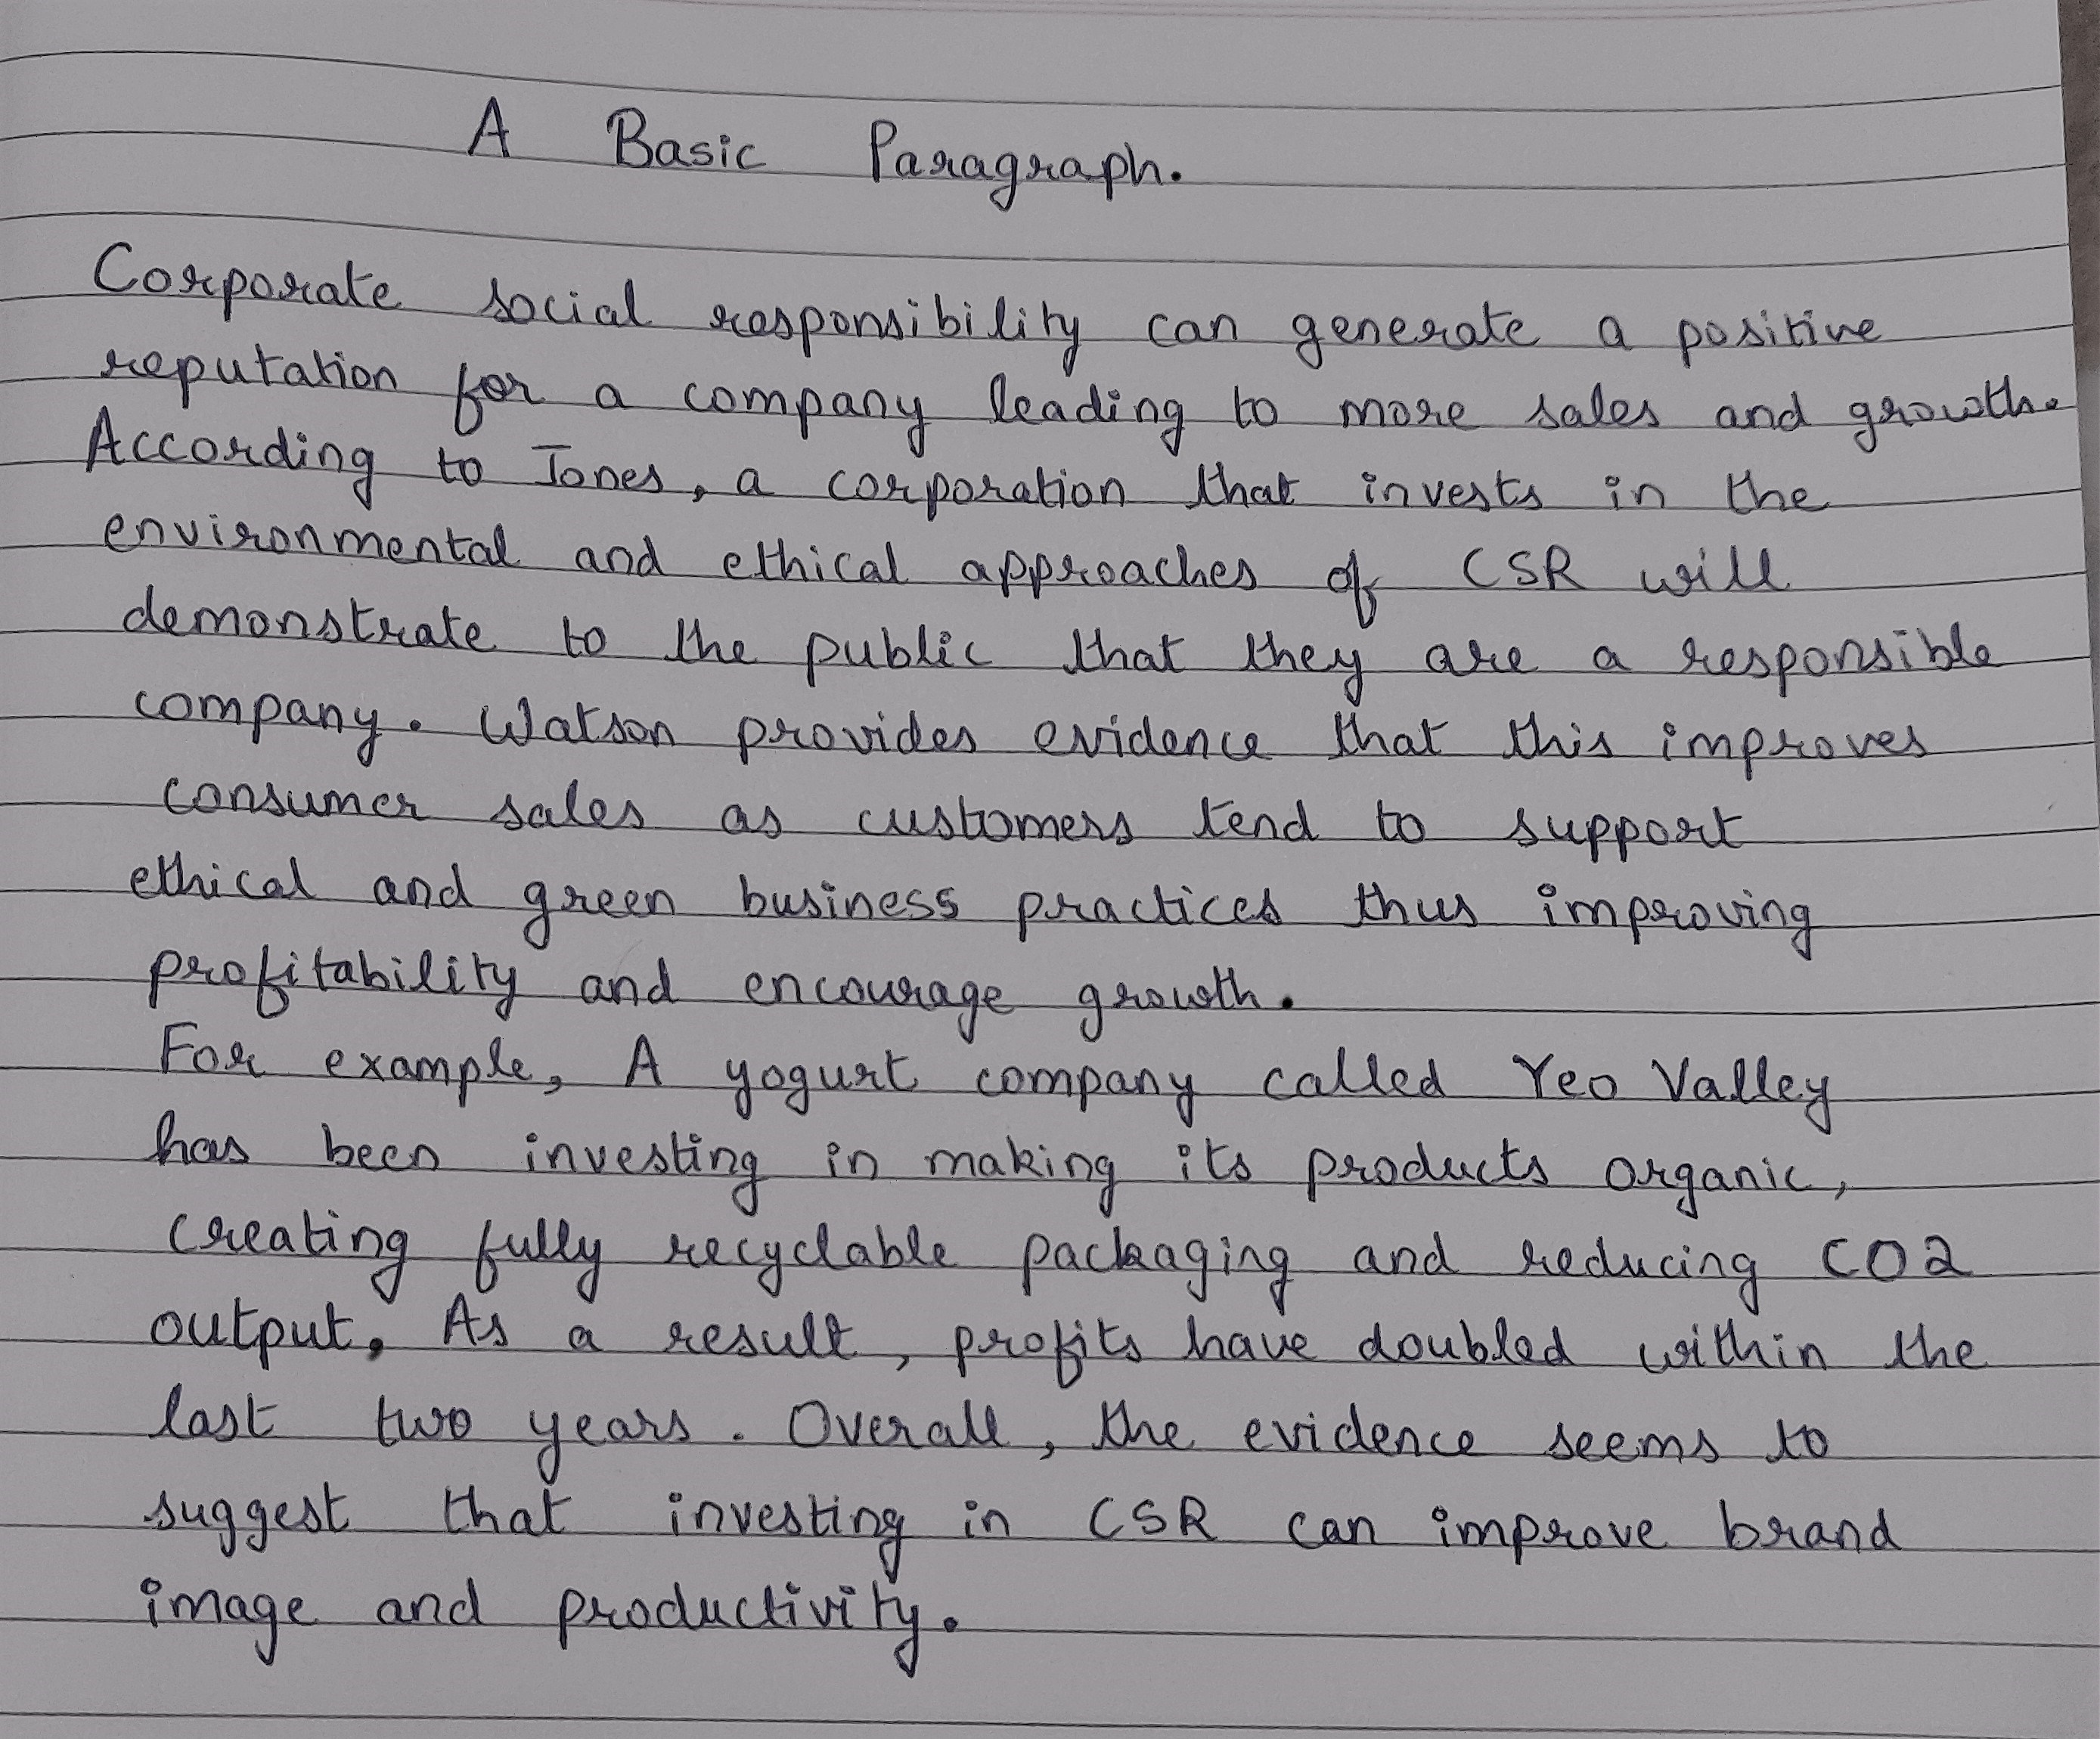 A Basic Paragraph.
Corporate social responsibility can generate a positive
reputation for a company leading to more sales and growth.
According to Jones, a corporation that invests in the
environmental and ethical approaches of CSR will
demonstrate to the public that they are a responsible
company. Watson provides evidence that this improves
consumer sales as customers tend to support
ethical and green business practices thus improving
profitability and encourage growth.
For example, A yogurt company called Yeo Valley
has been investing in making its products organic,
creating fully recyclable packaging and reducing CO2
output. As a result, profits have doubled within the
last two years. Overall, the evidence seems to
suggest that investing in CSR can improve brand
image and productivity.